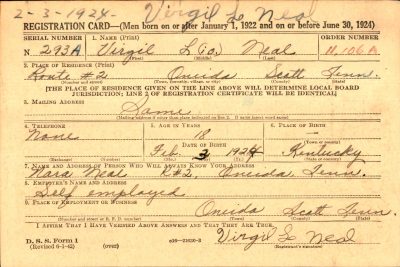 2-3-1924 Virgil L. Neal
REGISTRATION CARD—(Men born on or after January 1, 1922 and on or before June 30, 1924)
SERIAL NUMBER 1. NAME (Print) ORDER NUMBER
N 293A Virgil L (o) Neal 11,106 A
2. PLACE OF RESIDENCE (Print)
Route #2 Oneida Scott Tenn.
(Number and street) (Town, township, village, or city) (County) (State)
[THE PLACE OF RESIDENCE GIVEN ON THE LINE ABOVE WILL DETERMINE LOCAL BOARD
JURISDICTION; LINE 2 OF REGISTRATION CERTIFICATE WILL BE IDENTICAL]
3. MAILING ADDRESS
Same
[Mailing address if other than place indicated on line 2. If same insert word same]
4. TELEPHONE 5. AGE IN YEARS 6. PLACE OF BIRTH
None 18
DATE OF BIRTH
Feb. 3 1924 Kentucky
7. NAME AND ADDRESS OF PERSON WHO WILL ALWAYS KNOW YOUR ADDRESS
Neal R#2, Oneida, Tenn.
8. EMPLOYER'S NAME AND ADDRESS
Self employed
9. PLACE OF EMPLOYMENT OR BUSINESS
Oneida Scott Tenn.
(Number and street or R. F. D. number) (Town) (County) (State)
I AFFIRM THAT I HAVE VERIFIED ABOVE ANSWERS AND THAT THEY ARE TRUE.
D. S. S. Form 1
(Revised 6-1-42) (over) Virgil L. Neal
(Registrant's signature)